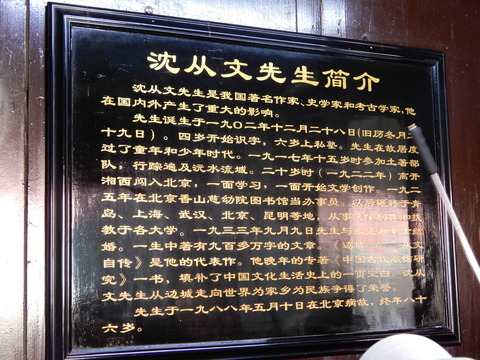 沈从文先生简介
沈从文先生是我国著名作家、史学家和考古学家,他
在国内外产生了重大的影响。
先生诞生于一九〇二年十二月二十八日(旧历冬月二
十九日)。四岁开始识字,六岁上私塾。先生在故居度
过了童年和少年时代。一九一七年十五岁时参加土著部
队,行踪遍及沅水流域。二十岁时(一九二二年)离开
湘西闯入北京,一面学习,一面开始文学创作。一九二
五年在北京香山慈幼院图书馆当办事员。以后辗转于青
岛、上海、武汉、北京、昆明等地,从事
教于各大学。一九三三年九月九日先生与
婚。一生中著有九百多万字的文章。《边城》
自传》是他的代表作。他晚年的专著《中国古代服饰研
究》一书,填补了中国文化生活史上的一页空白。沈从
文先生从边城走向世界为家乡为民族争得了荣誉。
先生于一九八八年五月十日在北京病故,终年八十
六岁。